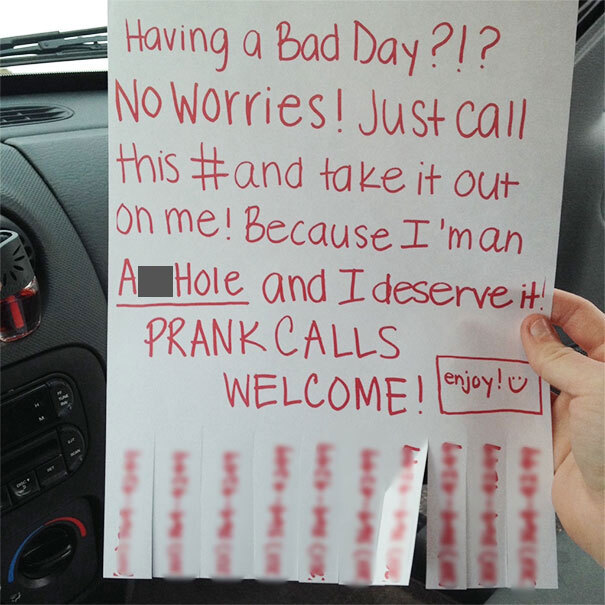 Having a Bad Day?!?
No Worries! Just call
this # and take it out
on me! Because I'm an
A Hole and I deserve it!
PRANK CALLS
WELCOME!
enjoy!